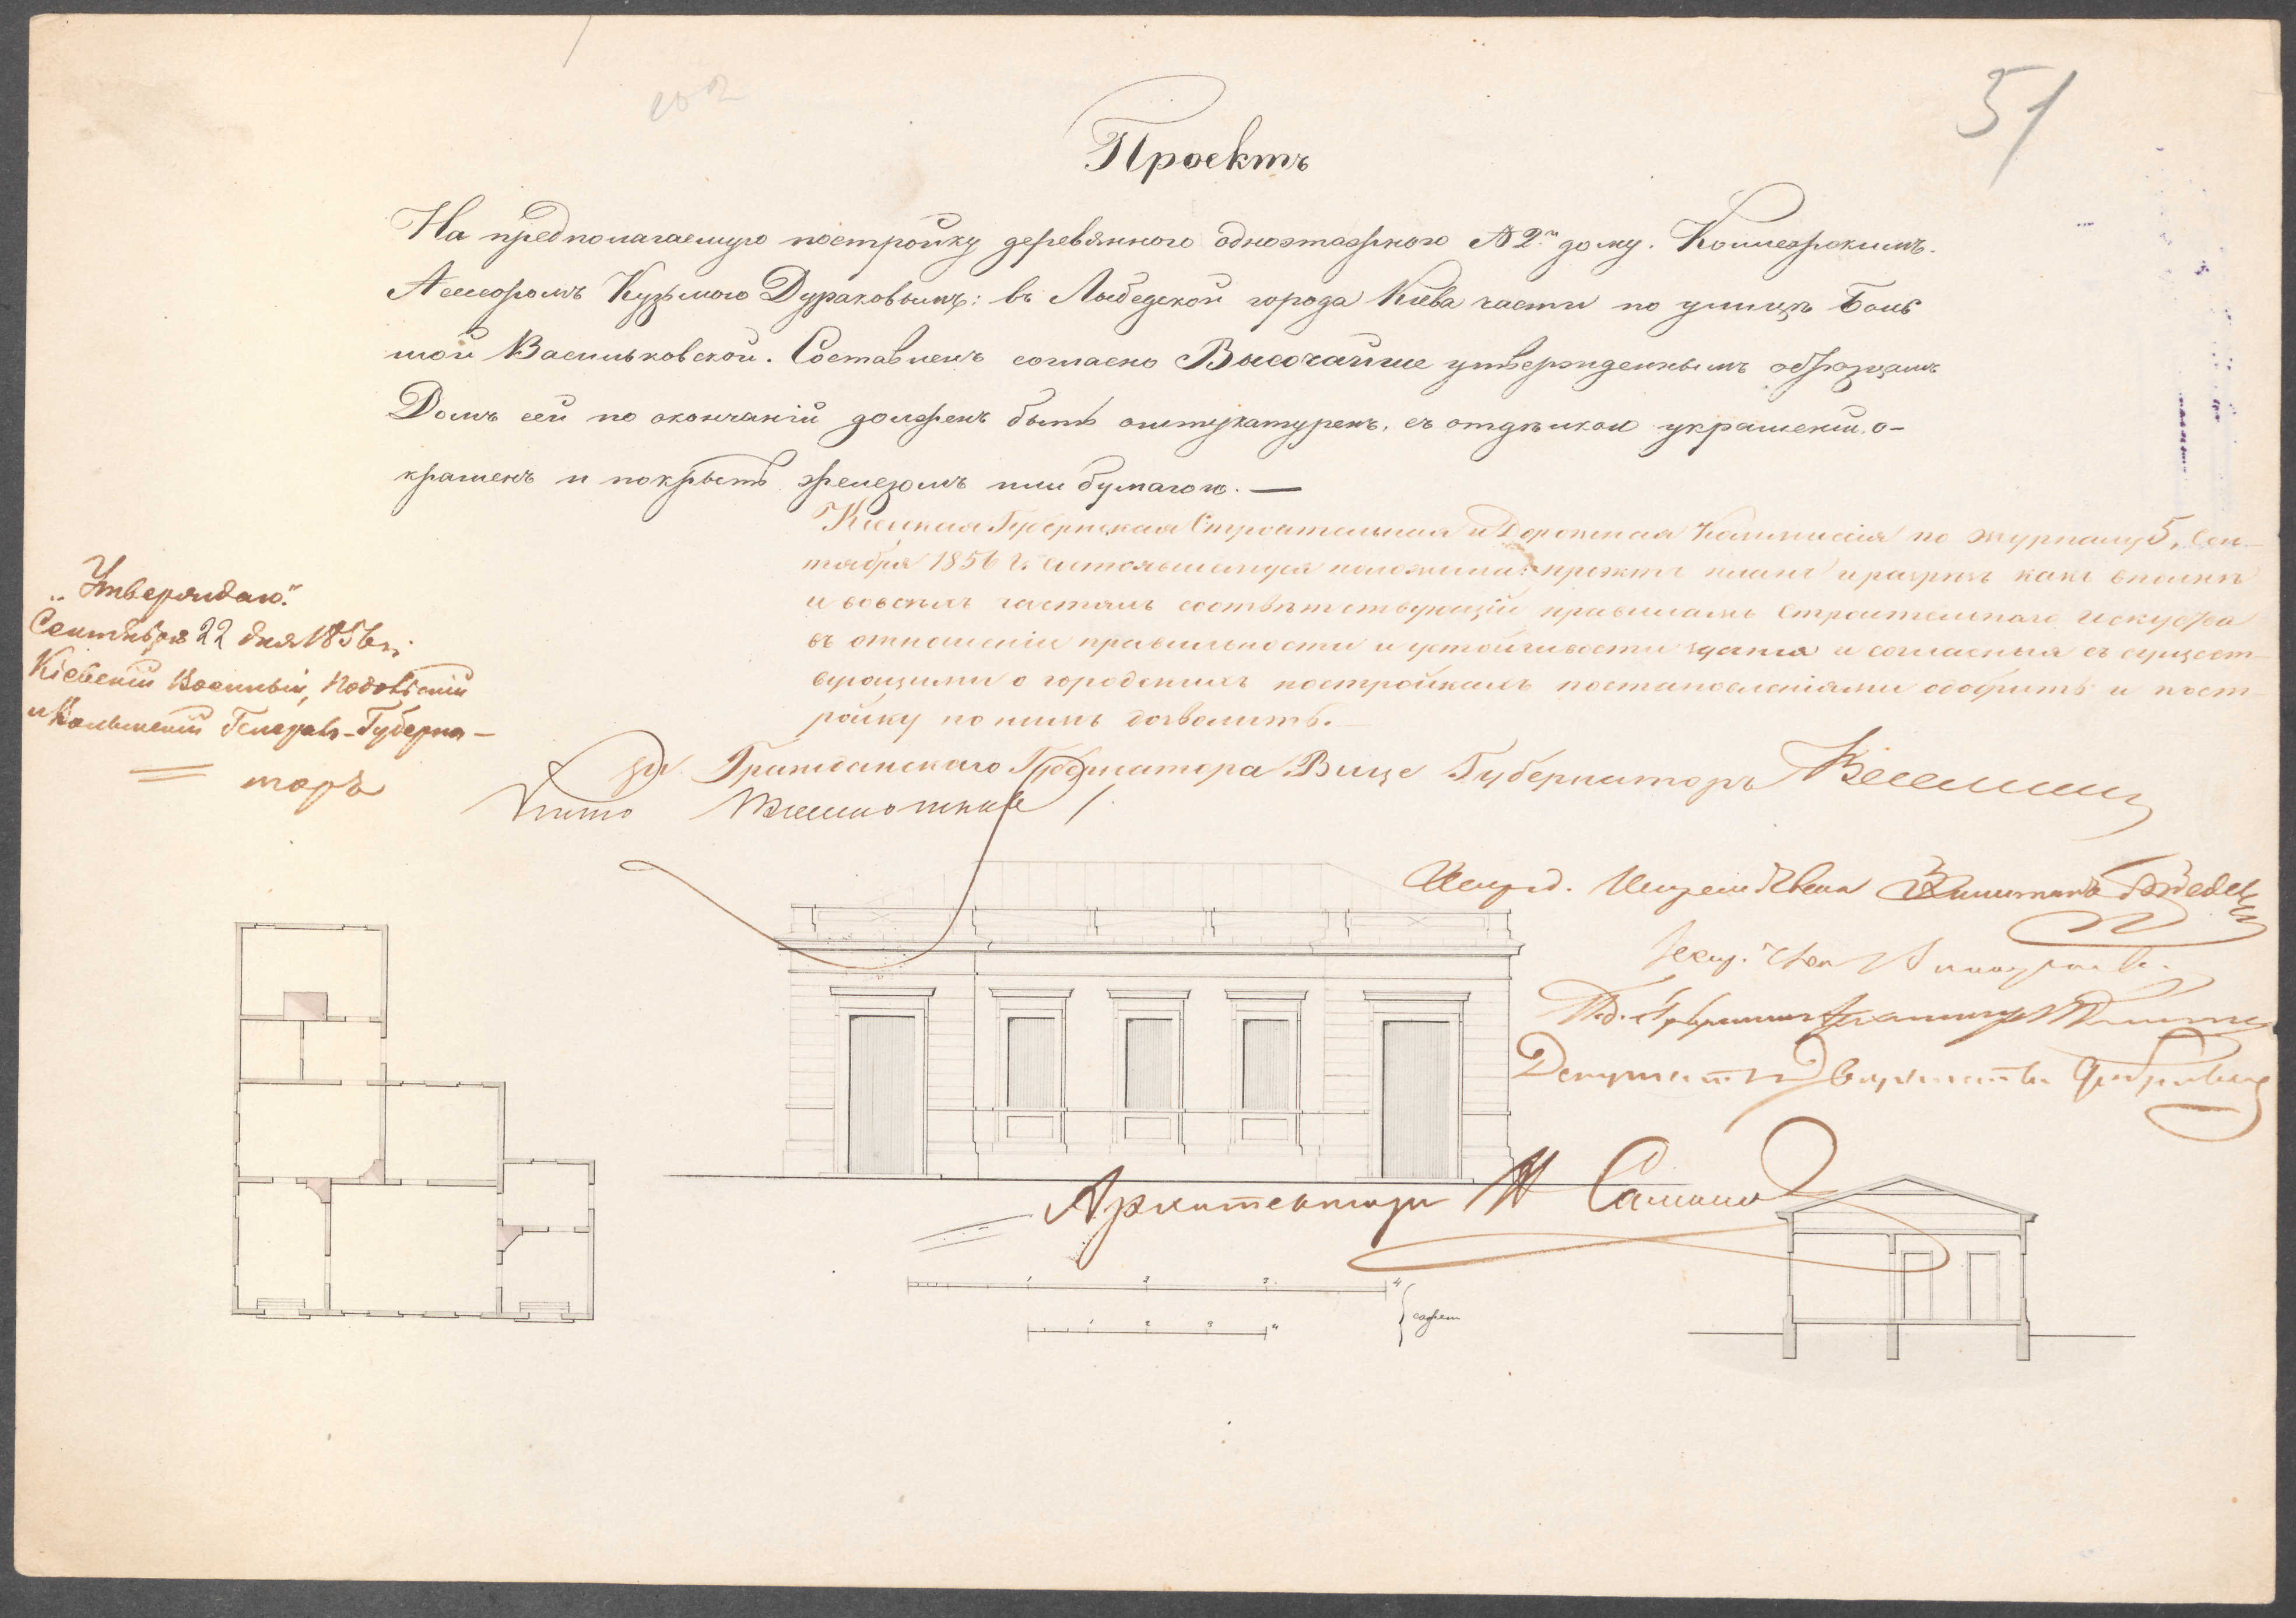 51
Проектъ
На предполагаемую постройку деревянного одноэтажного № 2го дому. Коллежскимъ.
Ассесоромъ Кузьмою Дураковымъ: въ Лыбедской города Кіева части по улицѣ Боль
шой Васильковской. Составленъ согласно Высочайше утвержденнымъ образцамъ
Домъ сей по окончаніи долженъ быть оштукатуренъ, съ отдѣлкою украшеній о-
крашенъ и покрытъ желѣзомъ или бумагою. —
Кіевская Губернская Строительная и Дорожная Коммисія по журналу 5, Сен-
тября 1856 г. состоявшемуся положила: проэктъ планъ и разрѣзъ какъ вполнѣ
и во всѣхъ частяхъ соотвѣтствующіи правиламъ Строительнаго Искуства
въ отношеніи правильности и устойчивости зданія и согласныя съ сущест-
вующими о городскихъ постройкахъ постановленіями одобрить и пост-
ройку по нимъ дозволить.
„Утверждаю."
Сентября 22 дня 1856 г.
Кіевскій Военный, Подольскій
и Волынскій Генералъ-Губерна-
торъ
за Гражданскаго Губернатора Вице Губернаторъ Веселкин
Депутатъ Дворянства
Архитекторъ
1 2 3. 4
1 2 3 4
сажен